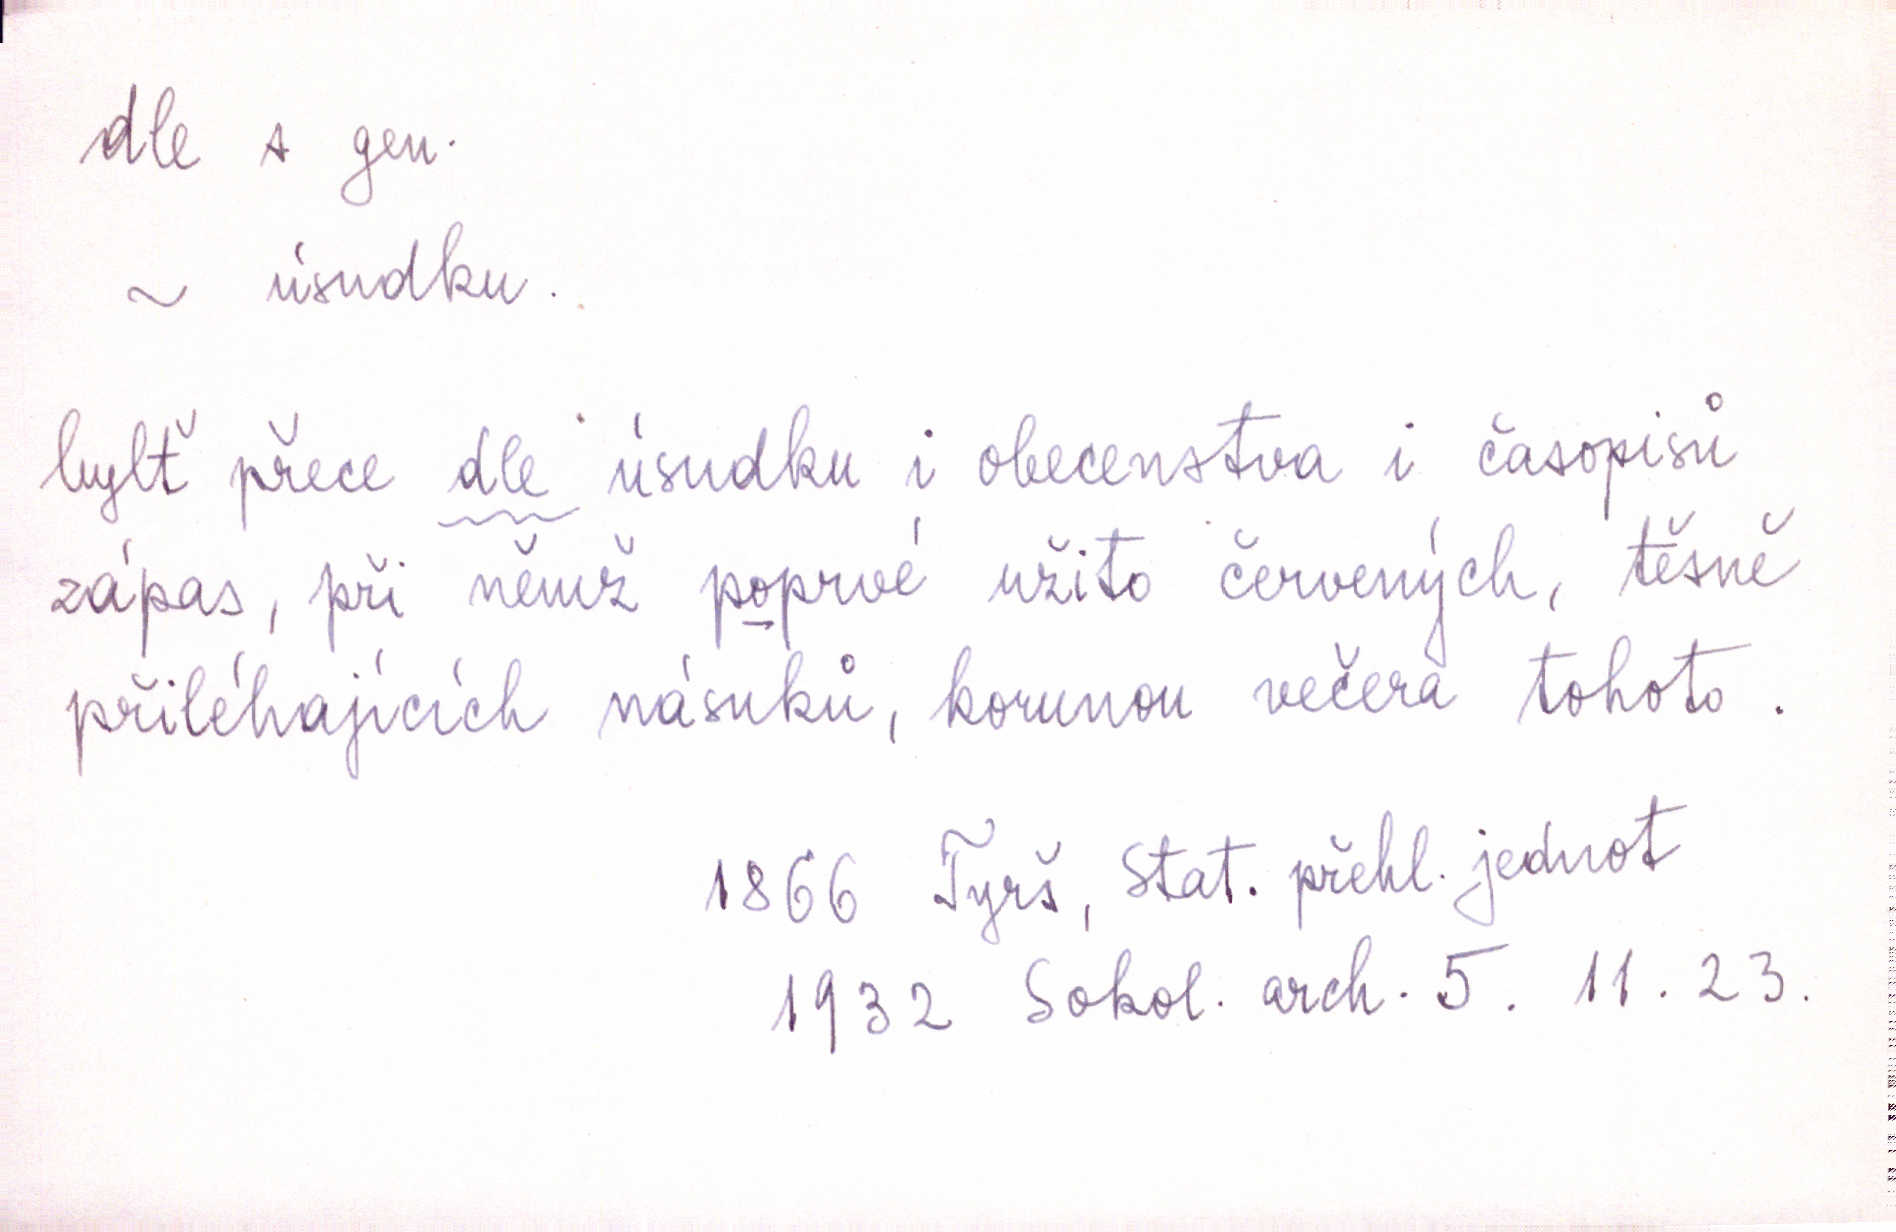 dle s gen.
~ úsudku.
bylť přece dle úsudku i obecenstva i časopisů
zápas, při němž poprvé užito červených, těsně
přiléhajících násuků, korunou večera tohoto.
1866 Tyrš, Stat. přehl. jednot
1932 Sokol. arch. 5. 11. 23.